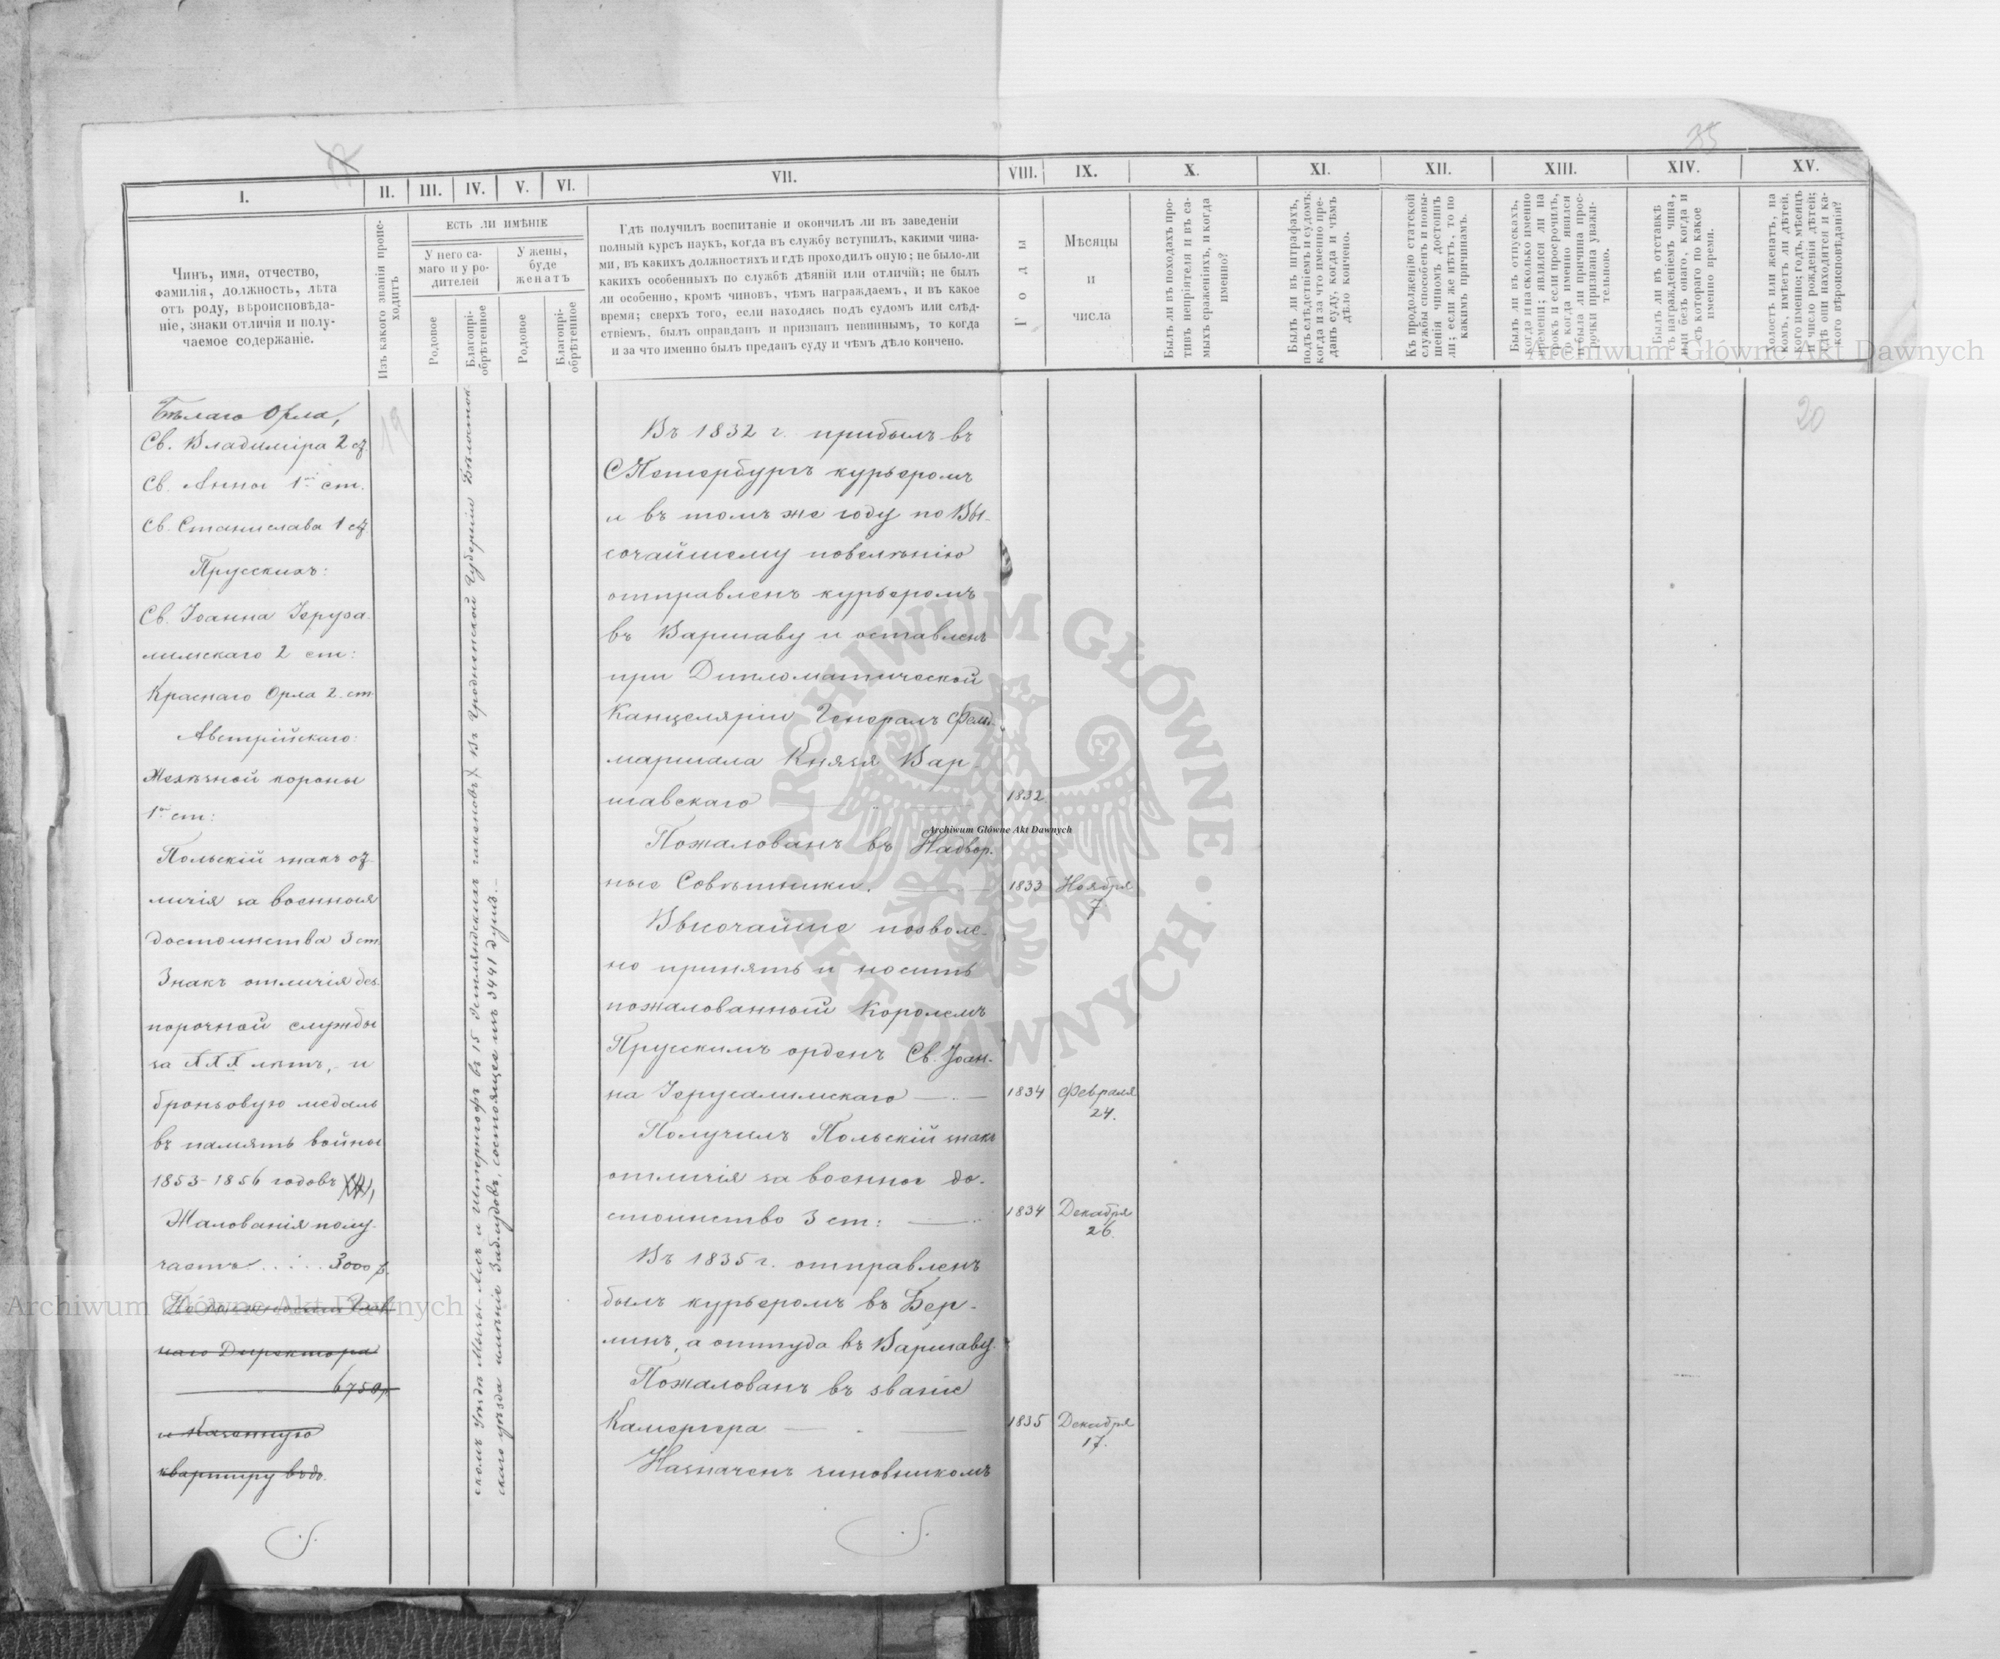 35
I.
II.
III.
IV.
V.
VI.
VII.
VIII.
IX.
X.
XI.
XII.
XIII.
XIV.
XV.
Чинъ, имя, отчество,
фамилія, должность, лѣта
отъ роду, вѣроисповѣда-
ніе, знаки отличія и полу-
чаемое содержаніе.
Изъ какого званія проис-
ходитъ
ЕСТЬ ЛИ ИМѢНІЕ
У него са-
маго и у ро-
дителей
У жены,
буде
женатъ
Родовое
Благопрі-
обрѣтенное
Родовое
Благопрі-
обрѣтенное
Гдѣ получилъ воспитаніе и окончилъ ли въ заведеніи
полный курсъ наукъ, когда въ службу вступилъ, какими чина-
ми, въ какихъ должностяхъ и гдѣ проходилъ оную; не было-ли
какихъ особенныхъ по службѣ дѣяній или отличій; не былъ
ли особенно, кромѣ чиновъ, чѣмъ награждаемъ, и въ какое
время; сверхъ того, если находясь подъ судомъ или слѣд-
ствіемъ, былъ оправданъ и признанъ невиннымъ, то когда
и за что именно былъ преданъ суду и чѣмъ дѣло кончено.
Годы
Мѣсяцы
и
числа
Былъ ли въ походахъ про-
тивъ непріятеля и въ са-
мыхъ сраженіяхъ, и когда
именно?
Былъ ли въ штрафахъ,
подъ слѣдствіемъ и судомъ:
когда и за что именно пре-
данъ суду, когда и чѣмъ
дѣло кончено.
Къ продолженію статской
службы способенъ и повы-
шенія чиномъ достоинъ
ли; если же нѣтъ, то по
какимъ причинамъ.
Былъ ли въ отпускахъ,
когда и насколько именно
времени; являлся ли на
срокъ и если просрочилъ,
то когда именно явился
и была ли причина прос-
рочки признана уважи-
тельною.
Былъ ли въ отставкѣ
съ награжденіемъ чина,
или безъ онаго, когда и
съ котораго по какое
именно время.
Холостъ или женатъ, на
комъ, имѣетъ ли дѣтей,
кого именно; годъ, мѣсяцъ
и число рожденія дѣтей;
гдѣ они находятся и ка-
кого вѣроисповѣданія?
Бѣлаго Орла,
Св. Владиміра 2 ст.
Св. Анны 1й ст.
Св. Станислава 1 ст.
Прусскихъ:
Св. Іоанна Іеруса-
лимскаго 2 ст:
Краснаго Орла 2. ст
Австрійскаго:
Желѣзной короны
1й ст:
Польскій знакъ от-
личія за военныя
достоинства 3 ст.
Знакъ отличія без-
порочной службы
за XXX лѣтъ, и
бронзовую медаль
въ память войны
1853-1856 годовъ
Жалованія полу-
чаетъ . . . . 3000 р.
наго Директора
6750 р.
и казенную
квартиру
19
скомъ Уѣздѣ въ 15 Эстляндскихъ гакеновъ, въ Гродненской Губерніи Бѣлосток-
скаго уѣзда имѣніе Заблудовъ, состоящее изъ 3441 душъ.
Въ 1832 г. прибылъ въ
СПетербургъ курьеромъ
и въ томъ же году по Вы-
сочайшему повелѣнію
отправленъ курьеромъ
въ Варшаву и оставленъ
при Дипломатической
Канцеляріи Генералъ Фельд-
маршала Князя Вар-
шавскаго
1832
Пожалованъ въ Надвор-
ные Совѣтники.
1833 Ноября
7
Высочайше позволе-
но принять и носить
пожалованный Королемъ
Прусскимъ орденъ Св. Іоан-
на Іерусалимскаго
1834 Февраля
24.
Получилъ Польскій знакъ
отличія за военное до-
стоинство 3 ст:
1834 Декабря
26.
Въ 1835 г. отправленъ
былъ курьеромъ въ Бер-
линъ, а оттуда въ Варшаву.
Пожалованъ въ званіе
Камергера
1835 Декабря
17.
Назначенъ чиновникомъ
20
Archiwum Główne Akt Dawnych
Archiwum Główne Akt Dawnych
Archiwum Główne Akt Dawnych
ARCHIWUM GŁÓWNE AKT DAWNYCH